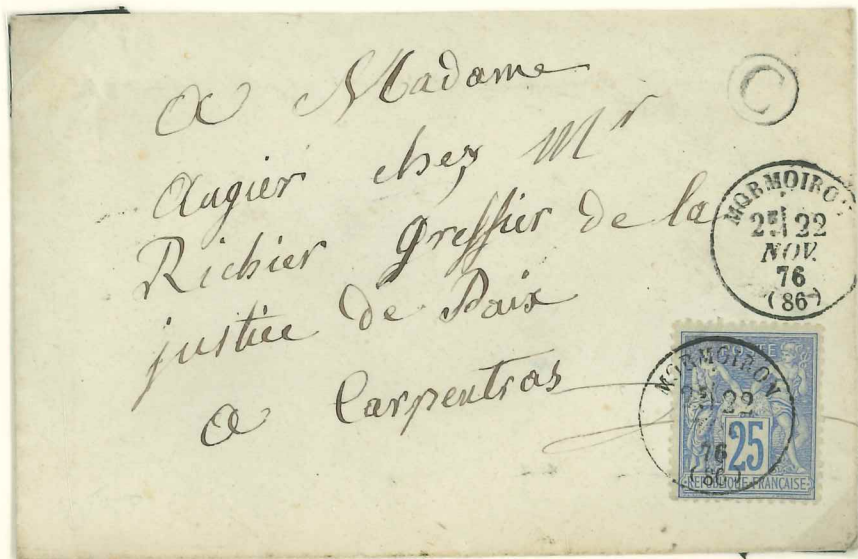 a Madame
augier chez Mr
Richier greffier de la
justice de Paix
a Carpentras
C
MORMOIRON
2E 22
NOV.
76
(86)
MORMOIRON
2E 22
76
(86)
25
REPUBLIQUE FRANÇAISE